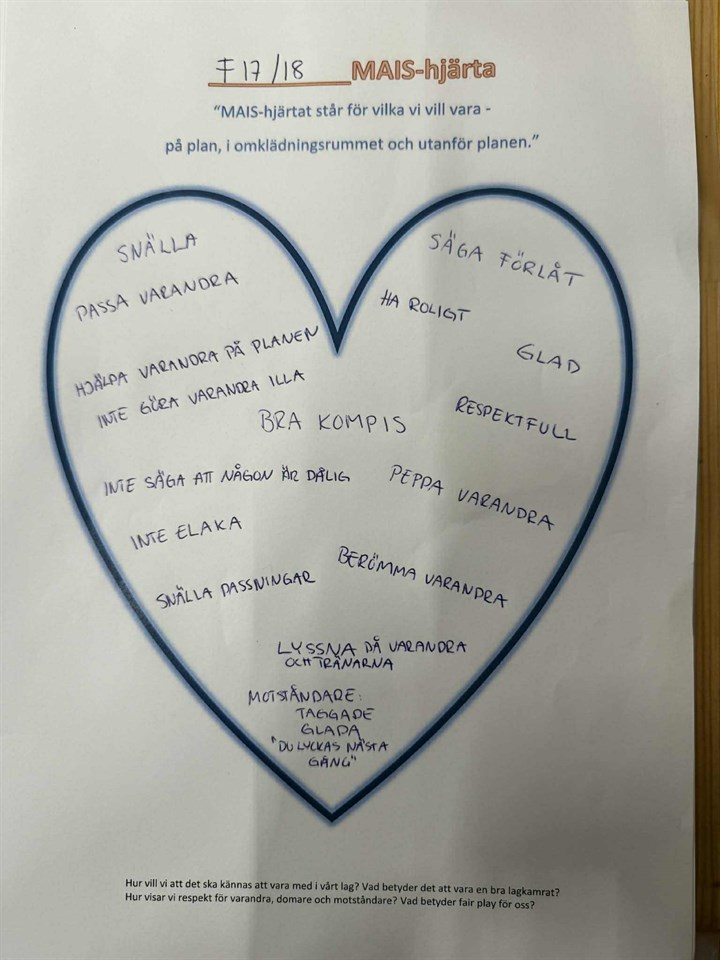 F17/18 MAIS-hjärta
"MAIS-hjärtat står för vilka vi vill vara -
på plan, i omklädningsrummet och utanför planen."
SNÄLLA
PASSA VARANDRA
HJÄLPA VARANDRA PÅ PLANEN
INTE GÖRA VARANDRA ILLA
SÄGA FÖRLÅT
HA ROLIGT
GLAD
RESPEKTFULL
BRA KOMPIS
INTE SÄGA ATT NÅGON ÄR DÅLIG
PEPPA VARANDRA
INTE ELAKA
BERÖMMA VARANDRA
SNÄLLA PASSNINGAR
LYSSNA PÅ VARANDRA
OCH TRÄNARNA
MOTSTÅNDARE:
TAGGADE
GLADA
"DU LYCKAS NÄSTA
GÅNG"
Hur vill vi att det ska kännas att vara med i vårt lag? Vad betyder det att vara en bra lagkamrat?
Hur visar vi respekt för varandra, domare och motståndare? Vad betyder fair play för oss?